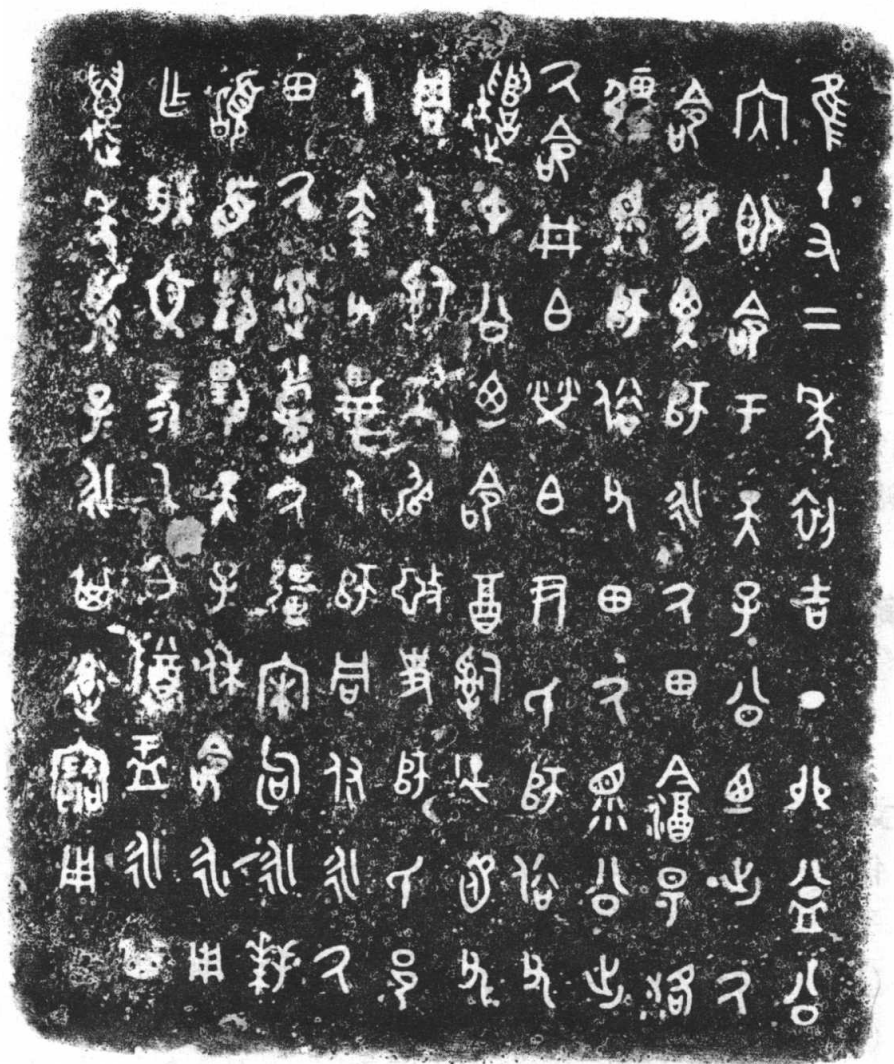 隹十又二年初吉丁卯益公
內即命于天子公迺出厥
命易畀師永厥田陰昜洛
疆眔師俗父田厥眔公出
厥命井白榮白尹氏師俗父
遣中公迺命酉司徒圅父
周人司工眉殳史師氏邑
人奎父畢人師同付永厥
田厥率履厥疆宋句永拜
稽首對揚天子休命永用
乍朕文考乙白尊盂永其
萬年孫孫子子永其率寶用